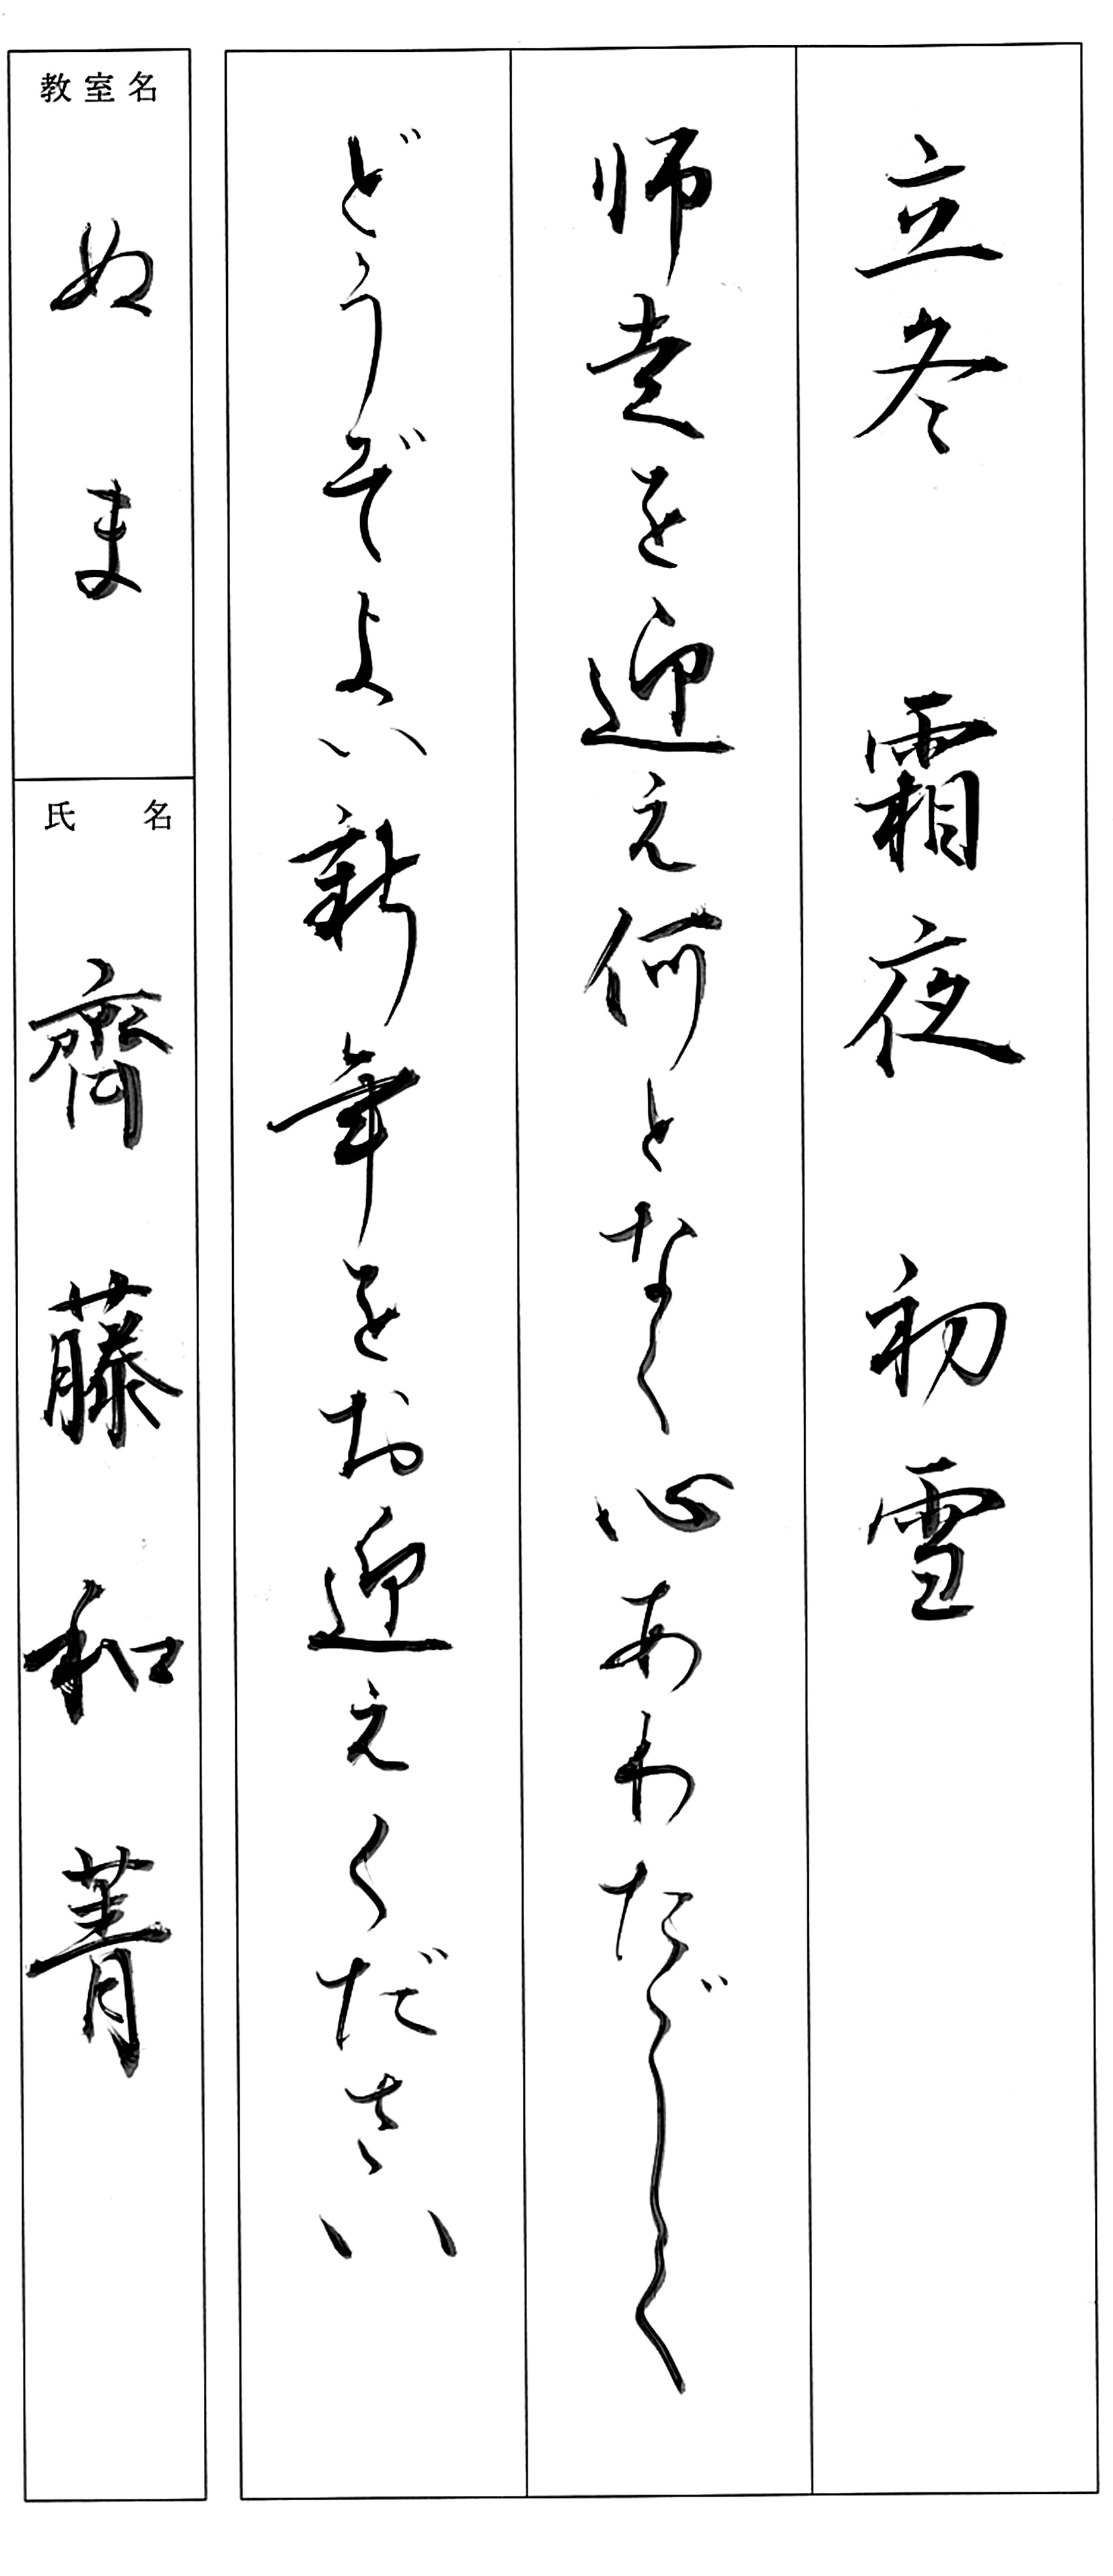 立冬　霜夜　初雪
師走を迎え何となく心あわただしく
どうぞよい新年をお迎えください
教室名
ぬま
氏名
齊藤和菁